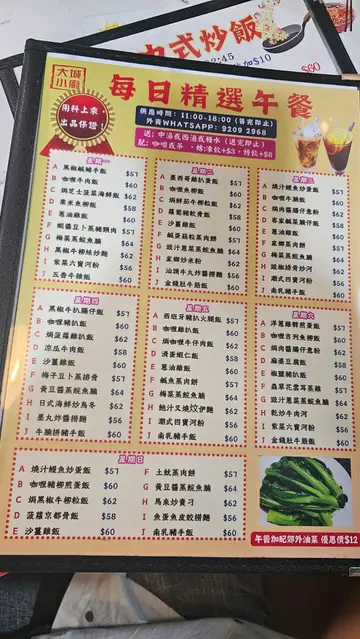 中式炒飯
$60
大城
小廚
每日精選午餐
用料上乘，
出品保證！
供應時間：11:00-18:00（售完即止）
外賣WHATSAPP: 9209 2968
送：中湯或西湯或糖水（送完即止）
配：咖啡或茶 ・精凍飲+$3 ・特飲+$6
星期一
A 黑椒鹹豬手飯 $57
B 咖喱牛肉飯 $60
C 焗芝士菠菜海鮮飯 $62
D 粟米魚柳飯 $58
E 蔥油雞飯 $60
F $57
G 梅菜蒸鯇魚腩 $64
H 黑椒牛柳絲炒麵 $62
I 紫菜六寶河粉 $56
J 五香牛雜飯 $60
星期二
A 墨西哥雞扒蛋飯 $57
B 咖喱魚柳飯 $60
C 焗鮮茄牛柳粒飯 $62
D 蘿蔔豬軟骨飯 $58
E 沙薑雞飯 $60
F 鹹蛋蓮藕蒸肉餅 $57
G 豉汁蒸鯇魚腩 $64
H 家鄉炒米粉 $62
I 汕頭牛丸炸醬撈麵 $56
J 金錢肚牛筋飯 $60
星期三
A 燒汁鰻魚炒蛋飯 $57
B 咖喱牛腩飯 $60
C 焗肉醬腸仔意粉 $62
D 客家鹹菜腩仔飯 $58
E 蔥油雞飯 $60
F 家鄉蒸肉餅 $57
G 梅菜蒸鯇魚腩 $64
H 豉椒排骨炒河 $62
I 潮式四寶河粉 $56
J 南乳豬手飯 $60
星期四
A 黑椒牛扒腸仔飯 $57
B 咖喱豬扒飯 $60
C 焗菠蘿雞扒飯 $62
D 涼瓜牛肉飯 $58
E 沙薑雞飯 $60
F 梅子豆卜蒸排骨 $57
G 黃豆醬蒸鯇魚腩 $64
H 日式海鮮炒烏冬 $62
I 墨丸炸醬撈麵 $56
J 牛腩拼豬手飯 $60
星期五
A 西班牙豬扒火腿飯 $57
B 咖喱雞扒飯 $60
C 焗咖喱牛仔肉飯 $62
D 清蒸蝦仁飯 $58
E 蔥油雞飯 $60
F 鹹魚蒸肉餅 $57
G 梅菜蒸鯇魚腩 $64
H 鮑汁叉燒炆伊麵 $62
I 潮式四寶河粉 $56
J 南乳豬手飯 $60
星期六
A 洋蔥雞髀煎蛋飯 $57
B 咖喱吉列魚柳飯 $60
C 焗肉醬腸仔意粉 $62
D 麻婆豆腐飯 $58
E 椒鹽豬扒飯 $60
F 蟲草花雲耳蒸雞 $57
G 豉汁蔥菜蒸鯇魚腩 $64
H 乾炒牛肉河 $62
I 紫菜六寶河粉 $56
J 金錢肚牛筋飯 $60
星期日
A 燒汁鰻魚炒蛋飯 $57
B 咖喱豬柳煎蛋飯 $60
C 焗黑椒牛柳粒飯 $62
D 菠蘿京都骨飯 $58
E 沙薑雞飯 $60
F 土魷蒸肉餅 $57
G 黃豆醬蒸鯇魚腩 $64
H 馬來炒貴刁 $62
I 魚蛋魚皮餃撈麵 $56
J 南乳豬手飯 $60
午餐加配郊外油菜 優惠價$12